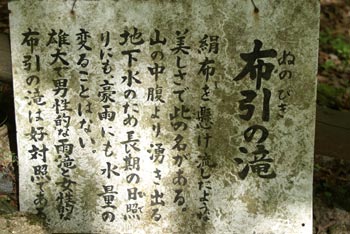 ぬのびき
布引の滝
絹布を懸け流したような
美しさで此の名がある。
山の中腹より湧き出る
地下水のため長期の日照
りにも豪雨にも水量の
変ることはない。
雄大で男性的な雨滝と女性的
布引の滝は好対照である